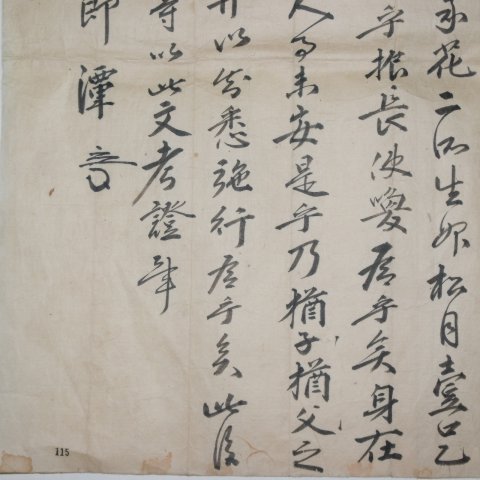 花二所生婢松月壹口乙
乎長使喚爲乎矣身在
人未安是乎乃猶子猶父之
以悉施行爲乎矣此後
等以此文考證事
潭
115